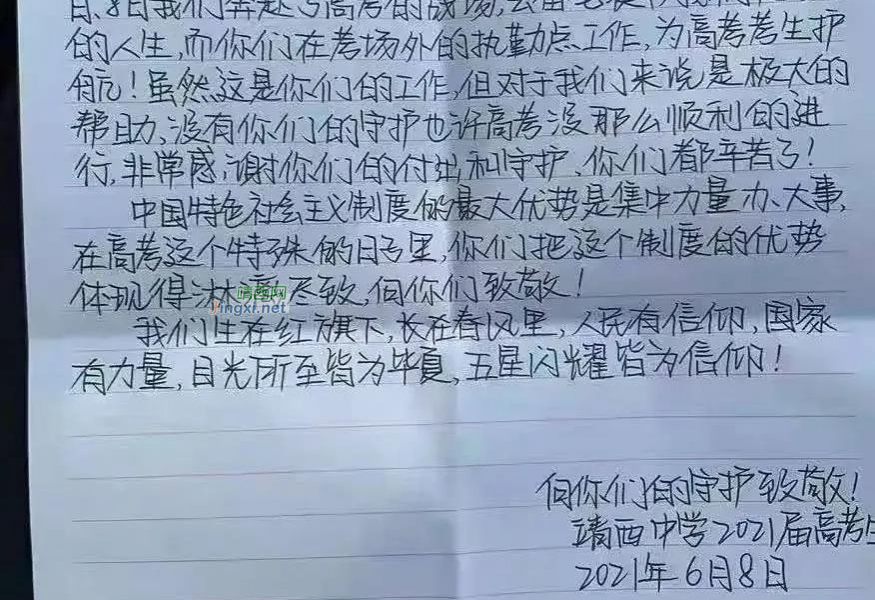 日、8日我们奔赴了高考的战场,
的人生,而你们在考场外的执勤点工作,为高考考生护
航!虽然这是你们的工作,但对于我们来说是极大的
帮助,没有你们的守护也许高考没那么顺利的进
行,非常感谢你们的付出和守护、你们都辛苦了!
中国特色社会主义制度的最大优势是集中力量办大事,
在高考这个特殊的日子里,你们把这个制度的优势
体现得淋漓尽致,向你们致敬!
靖西网
jingxi.net
我们生在红旗下,长在春风里,人民有信仰,国家
有力量,目光所至皆为华夏,五星闪耀皆为信仰!
向你们的守护致敬!
靖西中学2021届高考生
2021年6月8日